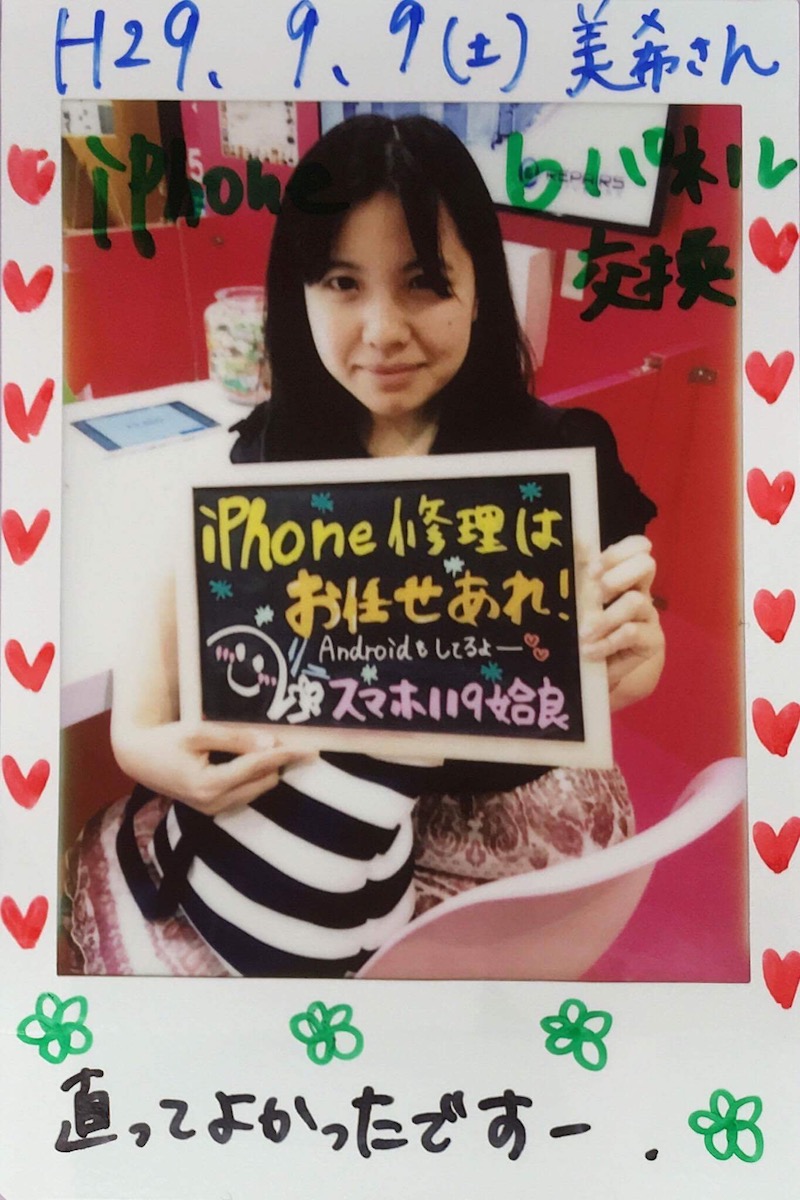 H29、9、9(土)美希さん
iPhone
パネル
交換
REPAIRS
iPhone修理は
お任せあれ!
Androidもしてるよー
スマホ119姶良
直ってよかったですー.